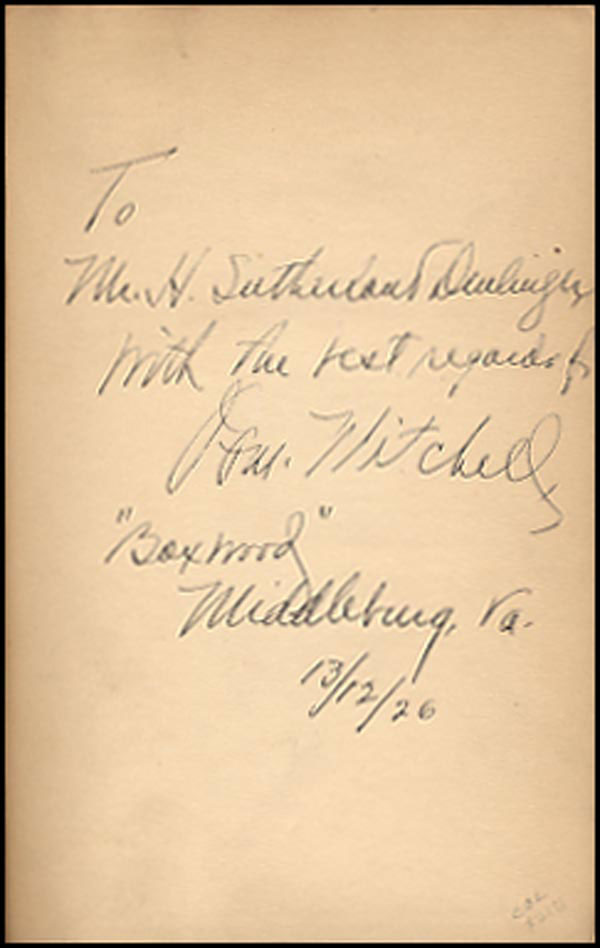 To
Mr. H. Sutherland Denlinger
With the best regards of
Wm. Mitchell
"Boxwood"
Middleburg, Va.
13/12/26